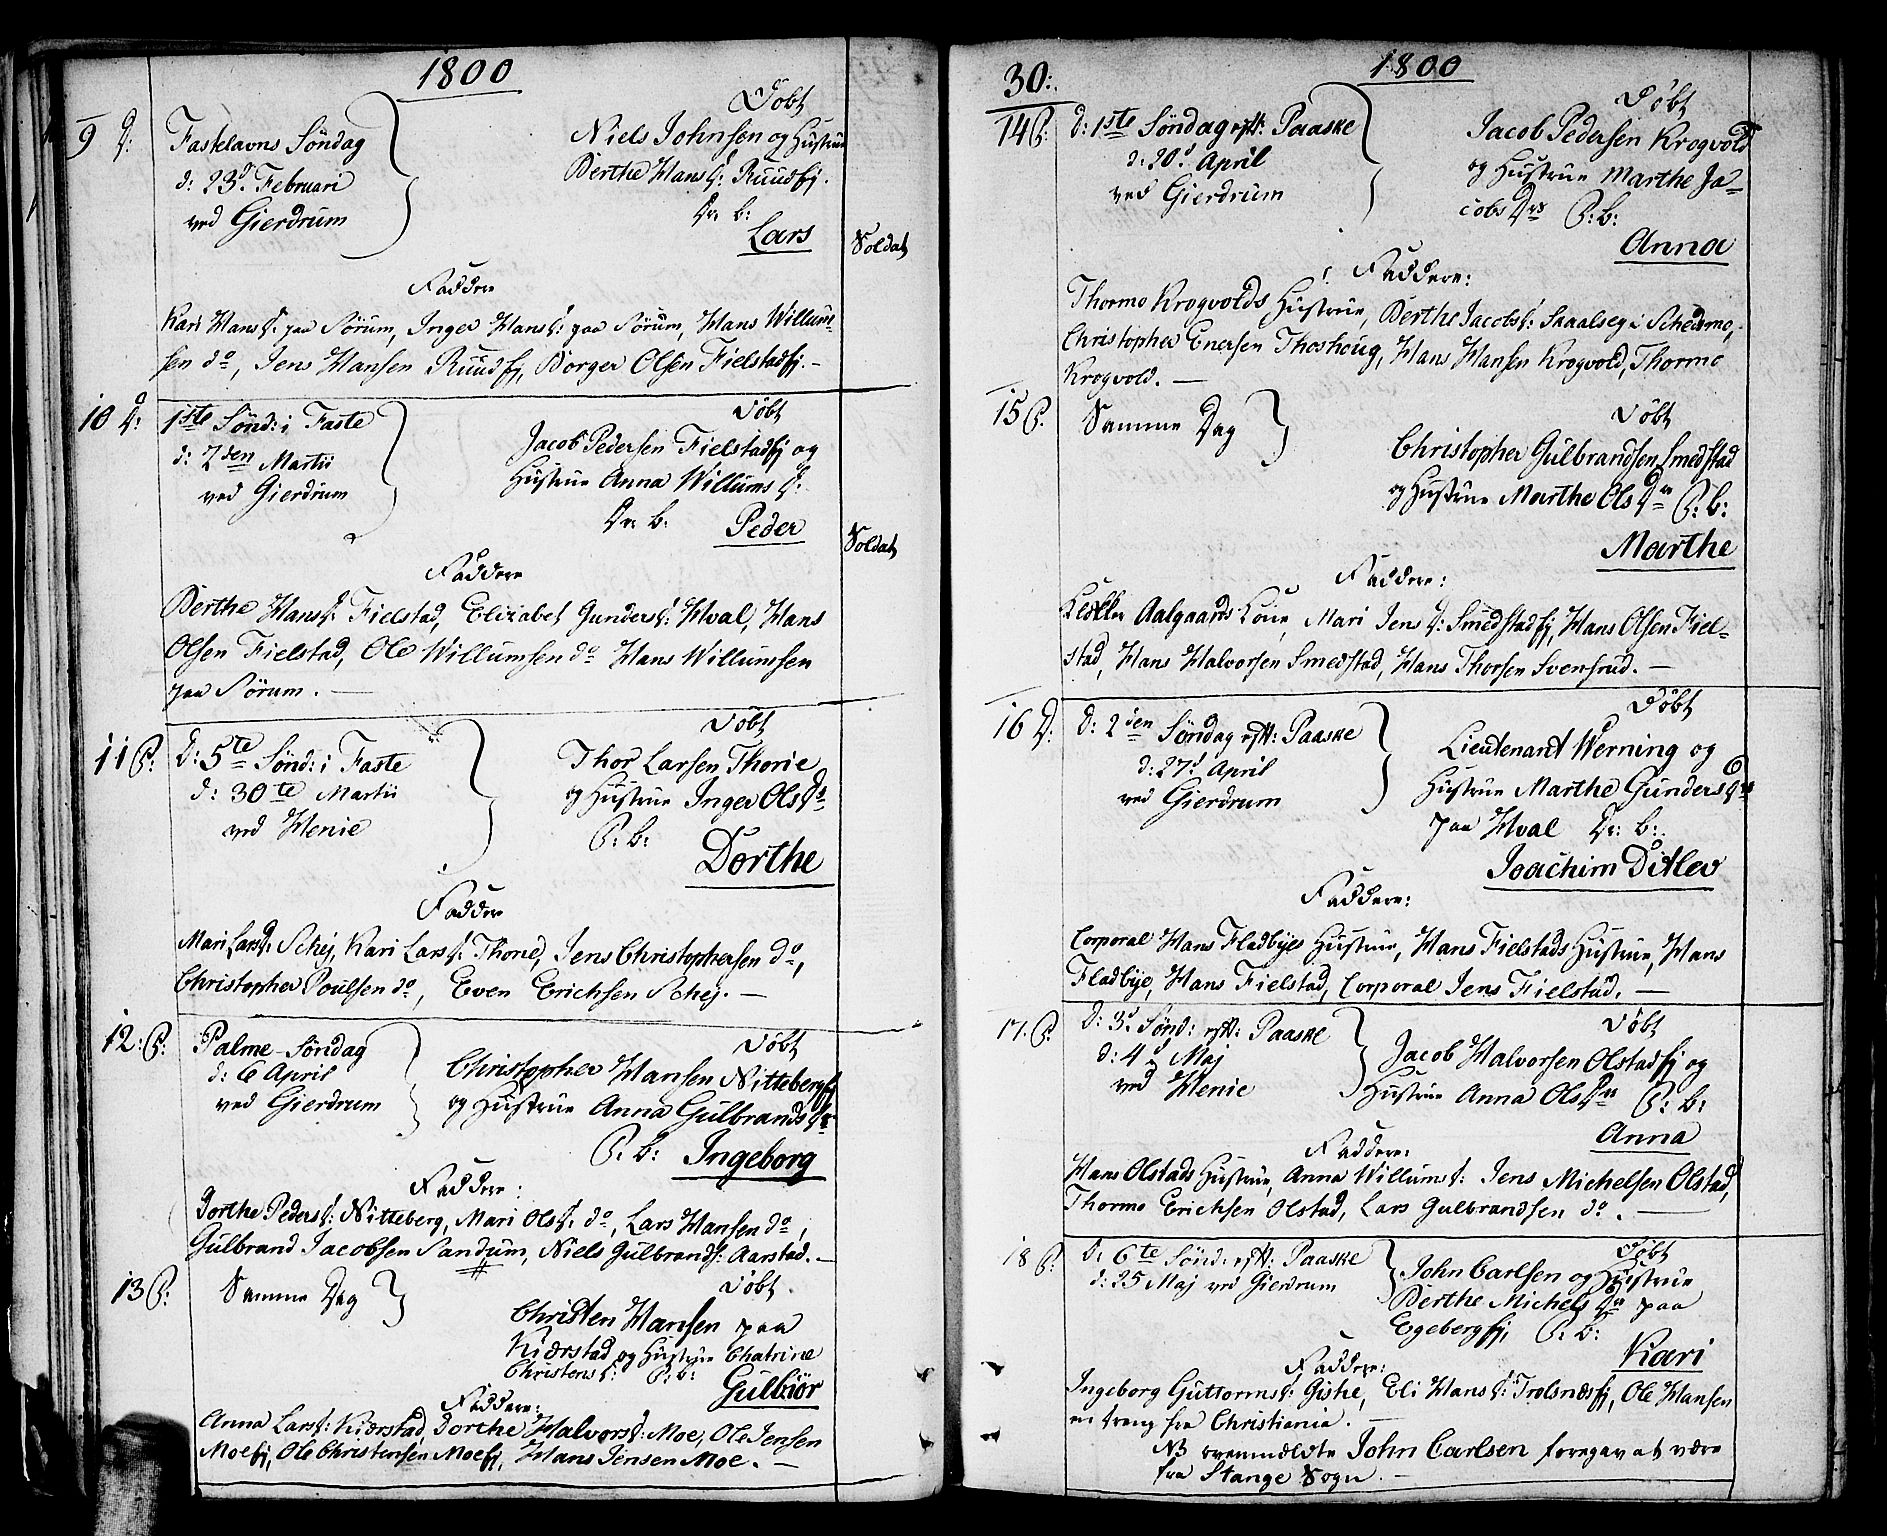 1800
9 D:
Fastelavns Söndag
d: 23d Februari
ved Gierdrum
Döbt
Niels Johnsen og Hustrue
Berthe Hansd: Ruudfj.
Dr: b:
Lars
Soldat
Faddere
Kari Hansd: paa Sörum, Inger Hansd: paa Sörum, Hans Willum-
sen do, Jens Hansen Ruudfj, Borger Olsen Fielstadfj. -
10 D:
1ste Sönd: i Faste
d: 2den Martii
ved Gierdrum
Döbt
Jacob Pedersen Fielstadfj og
Hustrue Anna Willums D:
Dr: b:
Peder
Soldat
Faddere
Berthe Hansd: Fielstad, Elizabet Gundersd: Hval, Hans
Olsen Fielstad, Ole Willumsen do Hans Willumsen
paa Sörum. -
11 P:
D: 5te Sönd: i Faste
d: 30te Martii
ved Henie
Döbt
Thor Larsen Thorie
og Hustrue Inger Olsdr
P: b:
Dorthe
Faddere
Mari Larsd: Schej, Kari Larsd: Thorie, Jens Christophersen do,
Christopher Poulsen do, Even Erichsen Schej. -
12: P:
Palme-Söndag
d: 6 April
ved Gierdrum
Döbt
Christopher Hansen Nittebergfj
og Hustrue Anna Gulbrandsdr
P: b: Ingeborg
Faddere:
Dorthe Pedersd: Nitteberg, Mari Olsd: do, Lars Hansen do,
Gulbrand Jacobsen Sandum, Niels Gulbrands: Aarstad. -
13 P:
Samme Dag
Döbt
Christen Hansen paa
Kiærstad og Hustrue Chatrine
Christensd: P: b:
Gulbiör
Faddere:
Anna Larsd: Kiærstad, Dorthe Halvorsd: Moe, Ole Jensen
Moefj, Ole Christensen Moefj, Hans Jensen Moe. -
30:
1800
14 P:
d: 1ste Söndag eft: Paaske
d: 20d April
ved Gierdrum
Döbt
Jacob Pedersen Krogvold
og Hustrue Marthe Ja-
cobs Dr P: b:
Anna
Faddere:
Thormo Krogvolds Hustrue, Berthe Jacobsd: Skaalseg i Schedsmo,
Christopher Enersen Thoshoug, Hans Hansen Krogvold, Thormo
Krogvold. -
15 P:
Samme Dag
Döbt
Christopher Gulbrandsen Smedstad
og Hustrue Marthe Ols Dr P: b:
Marthe
Faddere:
Aalgaards Kone, Mari Jens D: Smedstadfj, Hans Olsen Fiel-
stad, Hans Halvorsen Smedstad, Hans Thorsen Svensrud. -
16 D:
D: 2den Söndag eft: Paaske
d: 27d April
ved Gierdrum
Döbt
Lieutenant Werning og
Hustrue Marthe Gundersdr
paa Hval Dr: b:
Joachim Ditlev
Faddere:
Corporal Hans Fladbyes Hustrue, Hans Fielstads Hustrue, Hans
Fladbye, Hans Fielstad, Corporal Jens Fielstad. -
17. P:
D: 3d Sönd: eft: Paaske
d: 4d Maj
ved Henie
Döbt
Jacob Halvorsen Olstadfj og
Hustrue Anna Olsdr P: b:
Anna
Faddere:
Hans Olstads Hustrue, Anna Willumsd: Jens Michelsen Olstad,
Thormo Erichsen Olstad, Lars Gulbrandsen do. -
18 P:
D: 6te Sönd: eft: Paaske
d: 25 Maj ved Gierdrum
Döbt
John Carlsen og Hustrue
Berthe Michels Dr paa
Egebergfj, P: b:
Kari
Faddere:
Ingeborg Guttormsd: Gishe, Eli Hansd: Trolsnæsfj, Ole Hansen
en dreng fra Christiania. -
NB ovenmeldte John Carlsen foregav at være
fra Stange Sogn. -